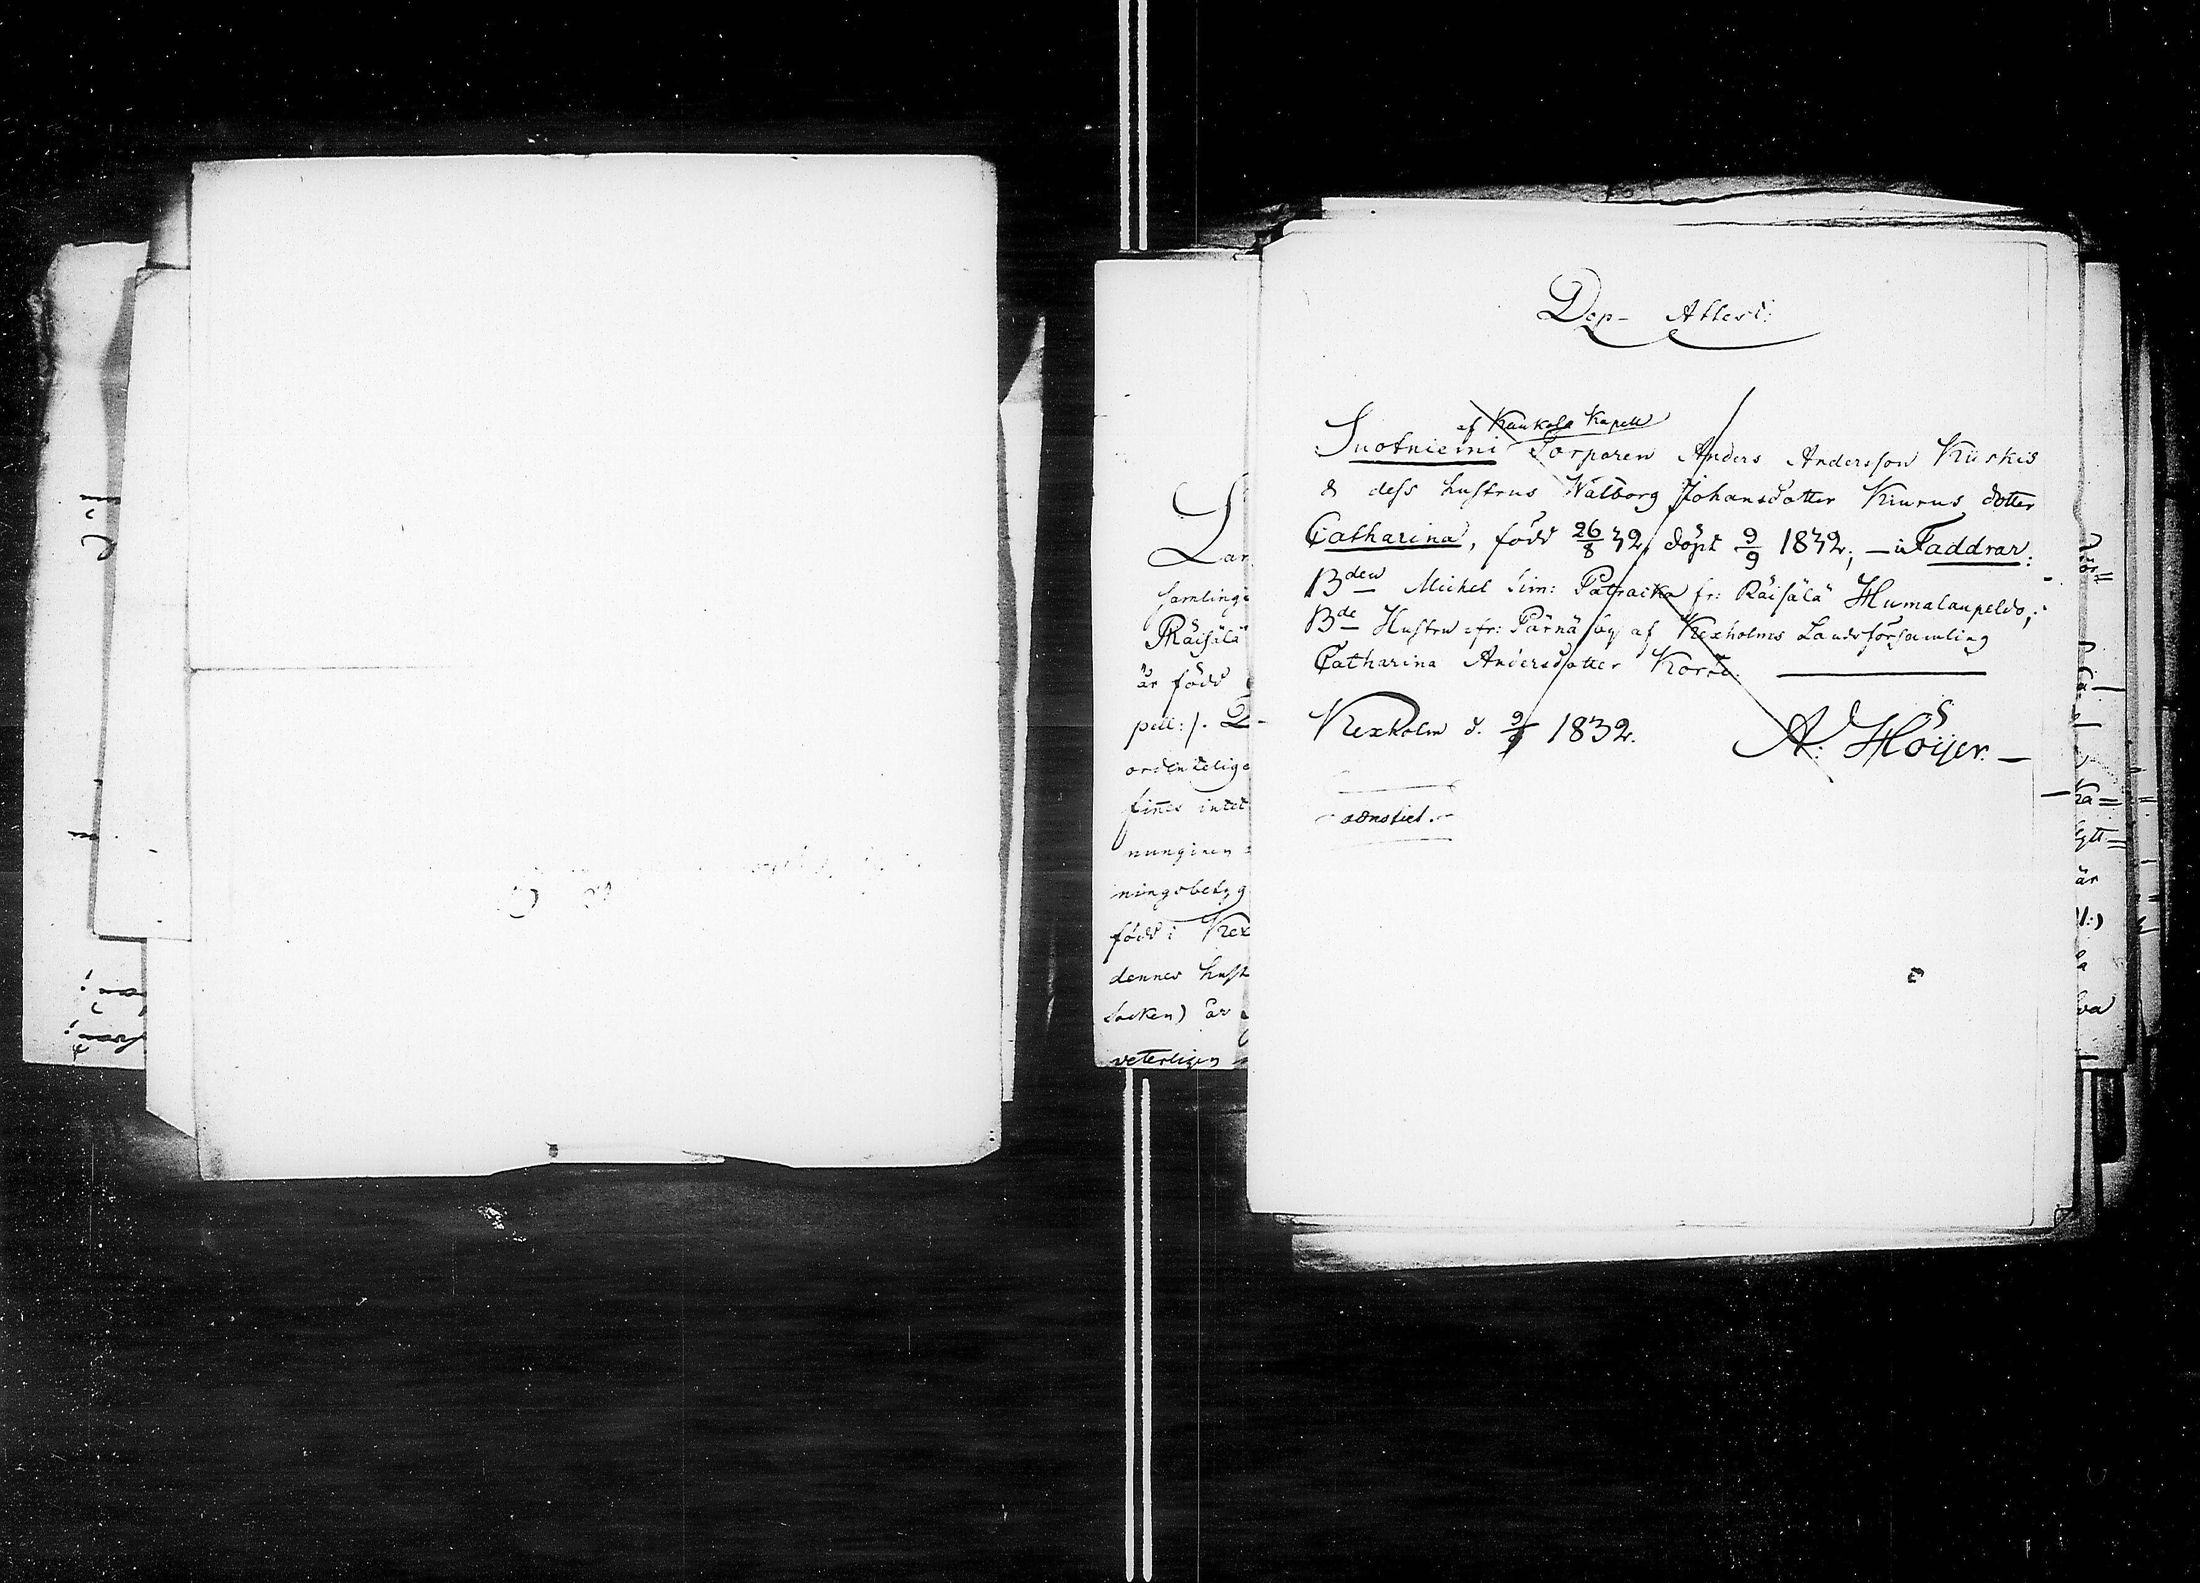 Dop- Attest:
af Kaukola Kapell
Suotniemi Torparen Anders Andersson Kuskis
& dess hustrus Walborg Johansdotter Kiurus dotter
Catharina, född 26/8 32, döpt 9/9 1832; — Faddrar:
Bden Michel Sim: Patracka fr: Räisälä Humalaupeldo;
Bde Hustru fr: Pärnä by af Kexholms Landsförsamling
Catharina Andersdotter Korte.
Kexholm d. 9/9 1832.
A: Höijer. —
Lar
samlinge
Räisälä
är född
pell:/.
ordentelige
fines intet
nunginen
ningsbetyg
född i Kex
dennes hust
socken) är
veterligen
är